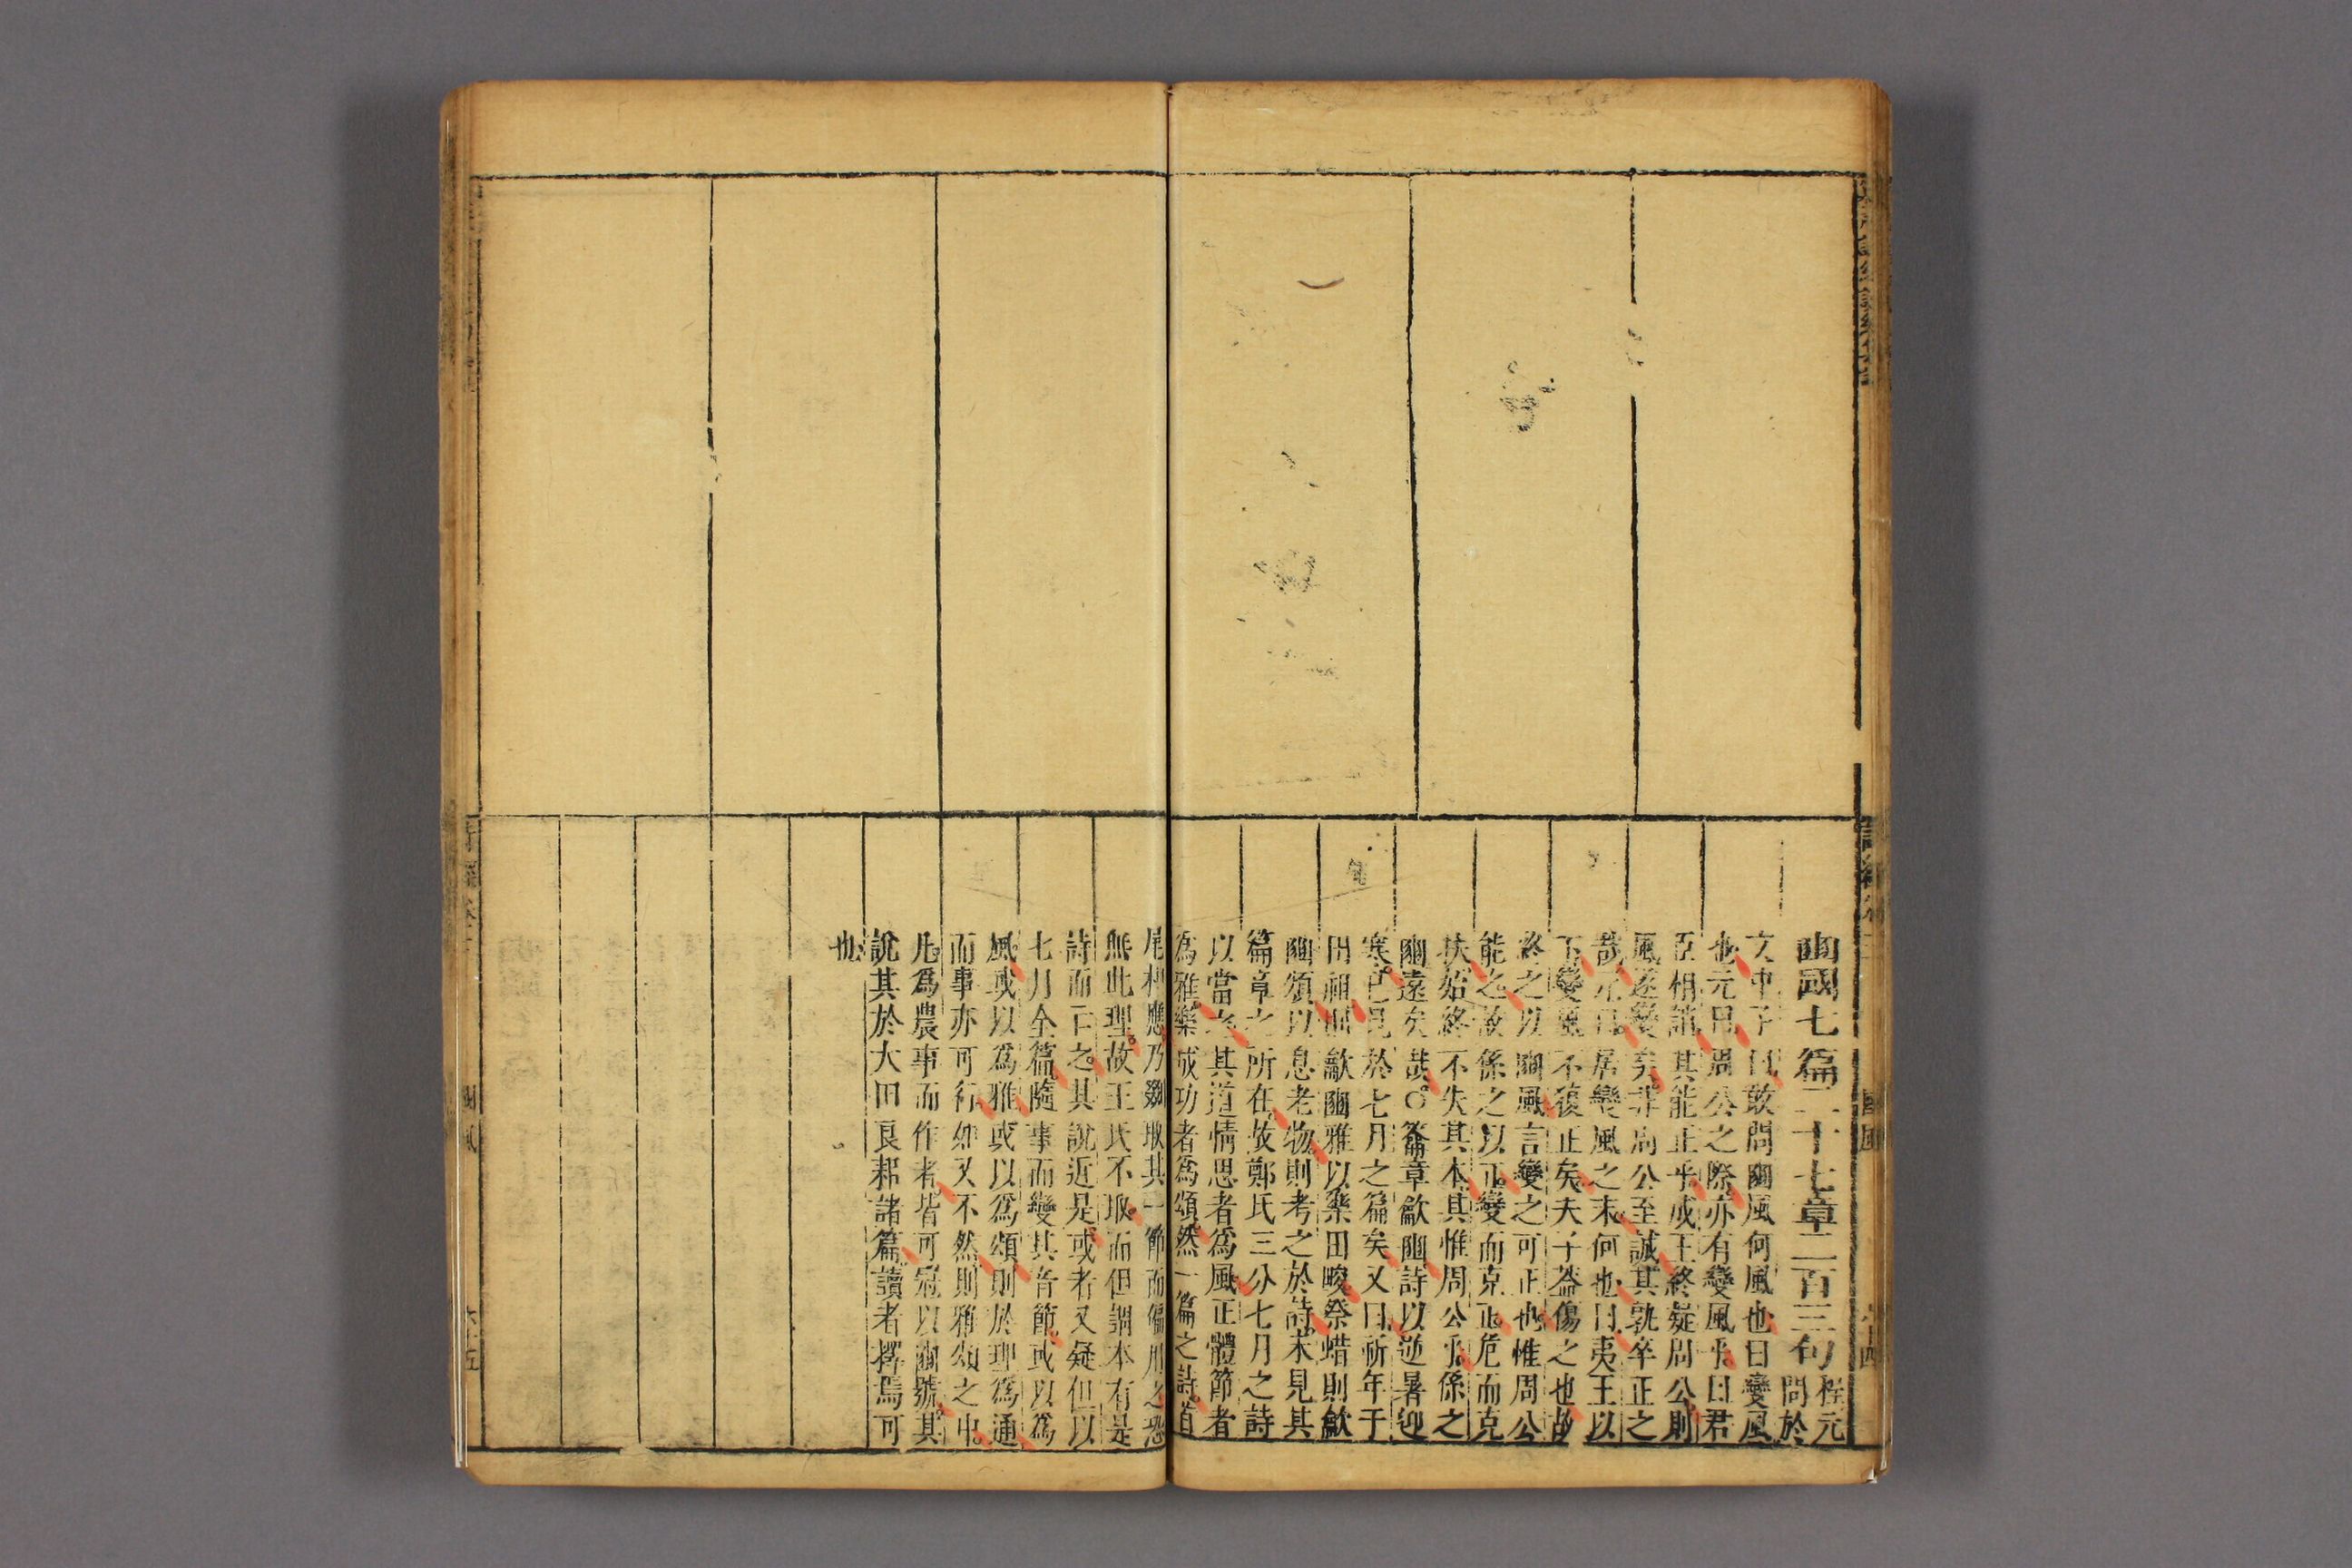 豳國七篇二十七章二百三句程元
問於
文中子曰敢問豳風何風也曰變風
也元曰周公之際亦有變風乎曰君
臣相誚其能正乎成王終疑周公則
風遂變矣非周公至誠其孰卒正之
哉元曰居變風之末何也曰夷王以
下變風不復正矣夫子蓋傷之也故
終之以豳風言變之可正也惟周公
能之故係之以正變而克正危而克
扶始終不失其本其惟周公乎係之
豳遠矣哉〇籥章龡豳詩以逆暑迎
寒已見於七月之篇矣又曰祈年于
田祖則龡豳雅以樂田畯祭蜡則龡
豳頌以息老物則考之於詩未見其
篇章之所在故鄭氏三分七月之詩
以當之其道情思者爲風正體節者
爲雅樂成功者爲頌然一篇之詩首
尾相應乃剟取其一節而偏用之恐
無此理故王氏不取而但謂本有是
詩而亡之其說近是或者又疑但以
七月全篇隨事而變其音節或以爲
風或以爲雅或以爲頌則於理爲通
而事亦可行如又不然則雅頌之中
凡爲農事而作者皆可冠以豳號其
說其於大田良耜諸篇讀者擇焉可
也